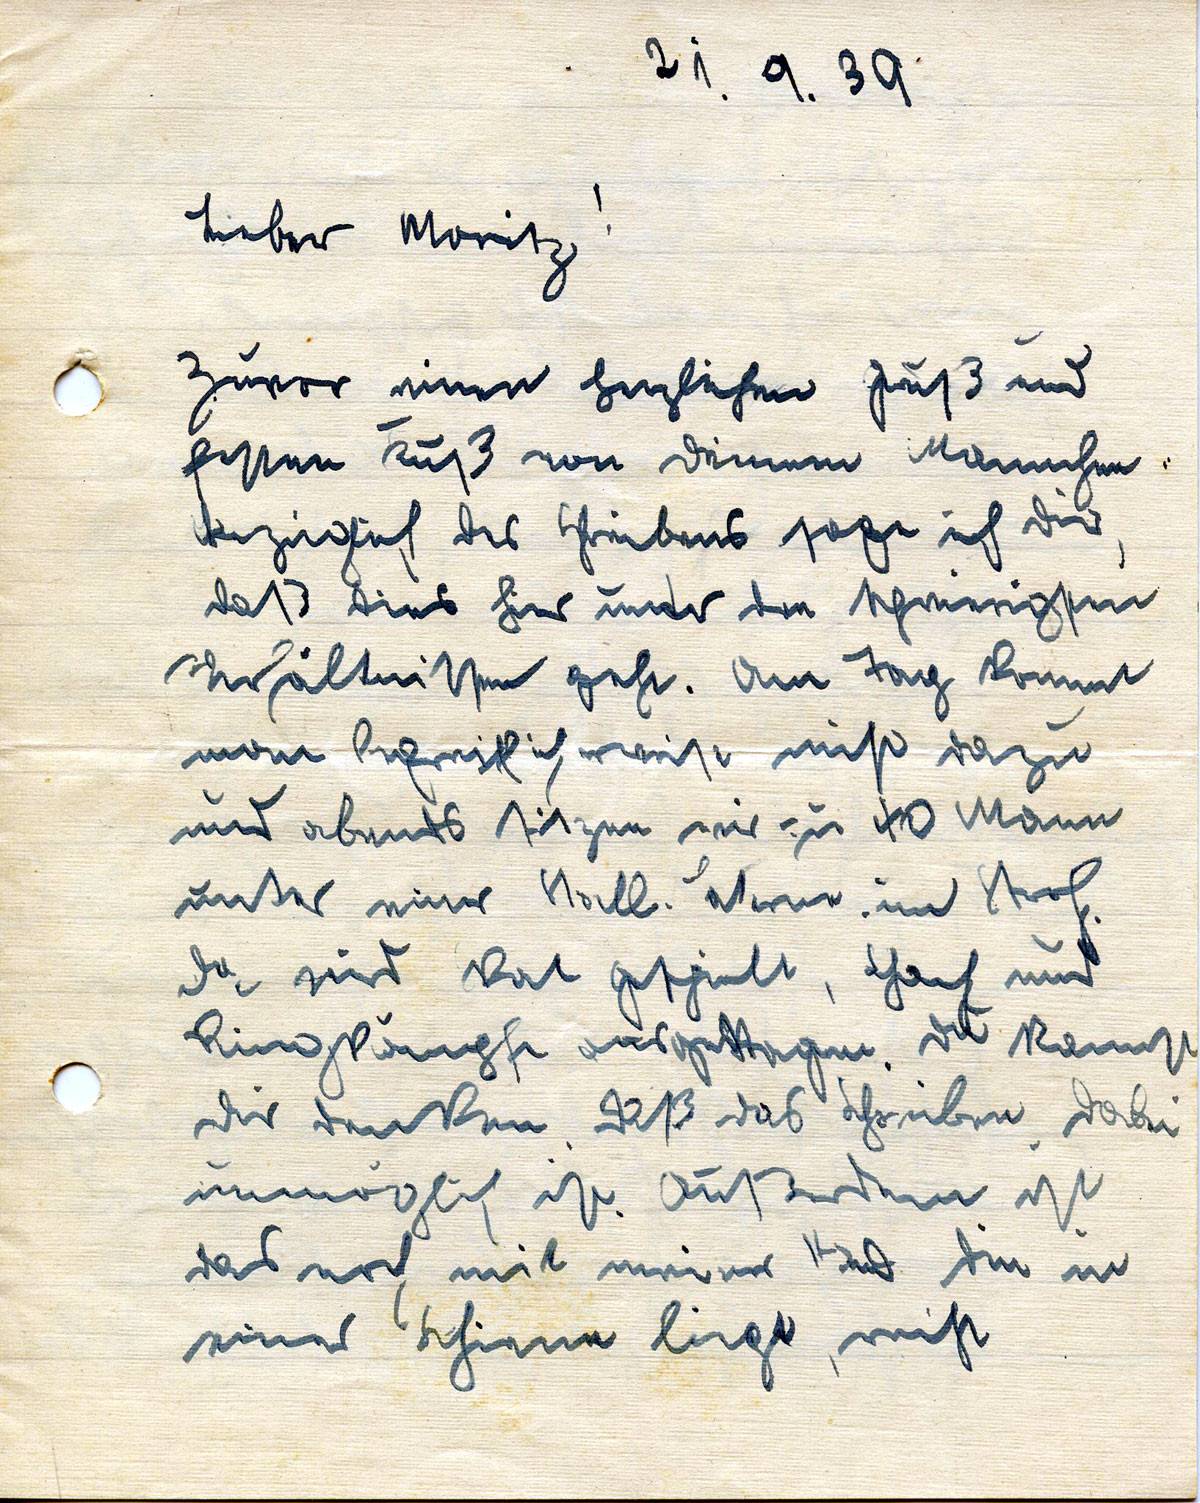 21. 9. 39
Lieber Moritz!
Zuvor einen herzlichen Gruß und
festen Kuß von Deinem Mannchen.
Bezüglich des Schreibens sage ich Dir,
daß dies hier unter den schwierigsten
Verhältnissen geht. Am Tag kommt
man begreiflicherweise nicht dazu
und abends sitzen wir zu 40 Mann
unter einer Stall-Laterne im Stroh.
Da wird Skat gespielt, Schach und
Ringkämpfe ausgetragen. Du kannst
Dir denken, daß das Schreiben dabei
unmöglich ist. Außerdem ist
das noch mit meiner Hand die in
einer Schiene liegt, nicht